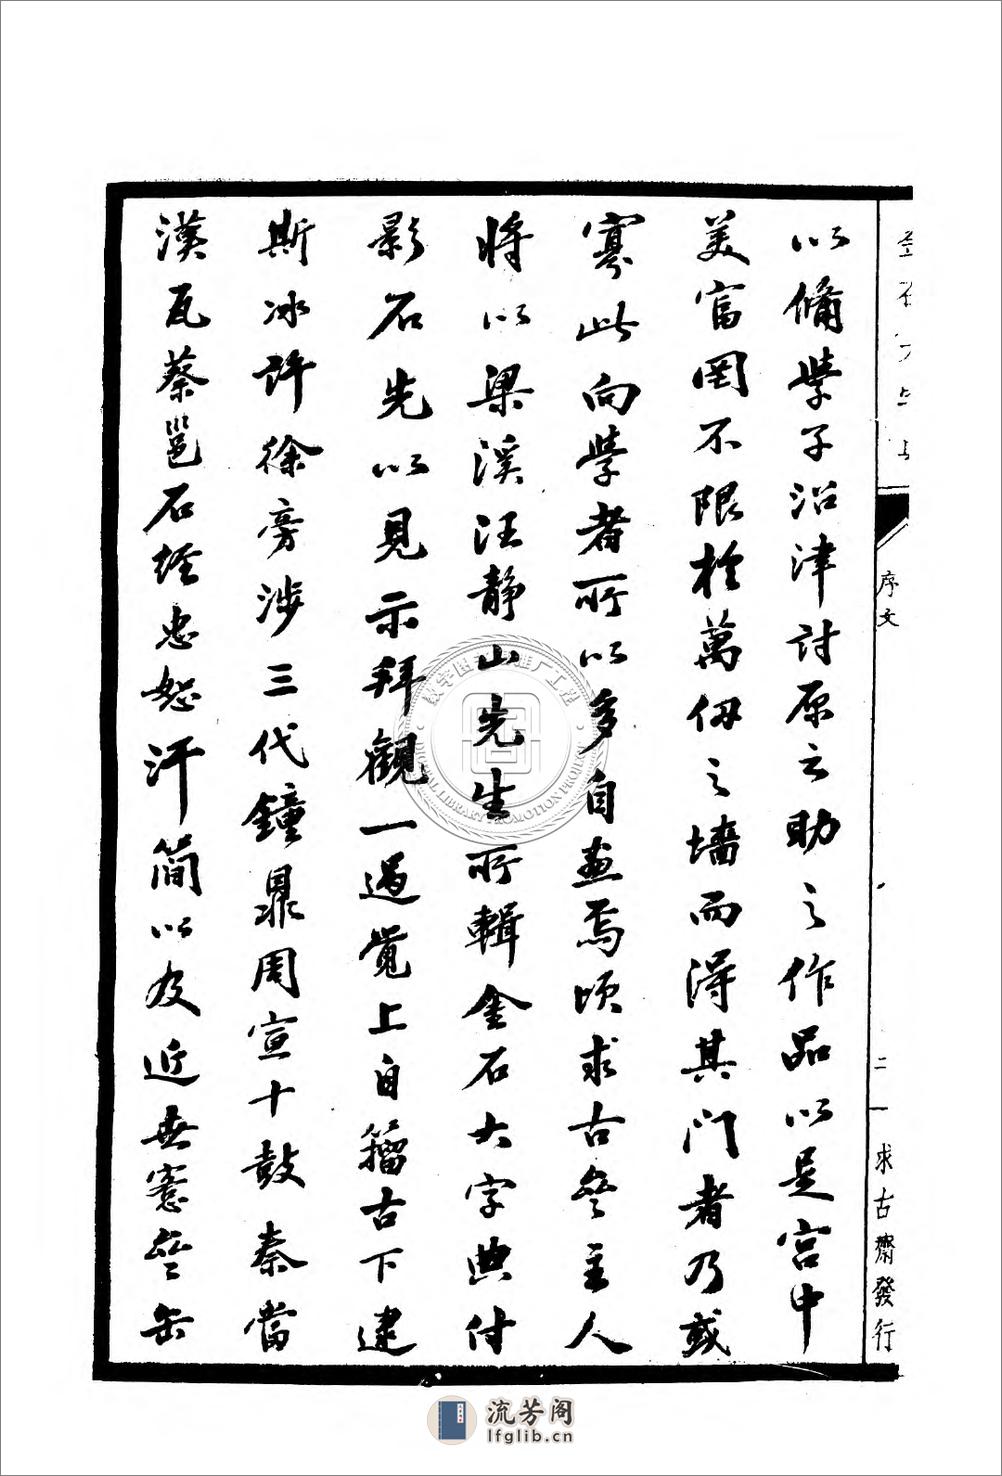 金石大字典
序文
二
求古齋發行
以備學子沿津討原之助之作品以是宮中
美富罔不限於萬仞之墻而得其門者乃或
寡此向學者所以多自畫焉頃求古齋主人
將以梁溪汪靜山先生所輯金石大字典付
影石先以見示拜觀一過覺上自籀古下逮
斯冰許徐旁涉三代鐘鼎周宣十鼓秦當
漢瓦蔡邕石經忠恕汗簡以及近世窻齋缶
流芳阁
lfglib.cn
數字圖 推广工程
DIGITAL LIBRARY PROMOTION PROJECT